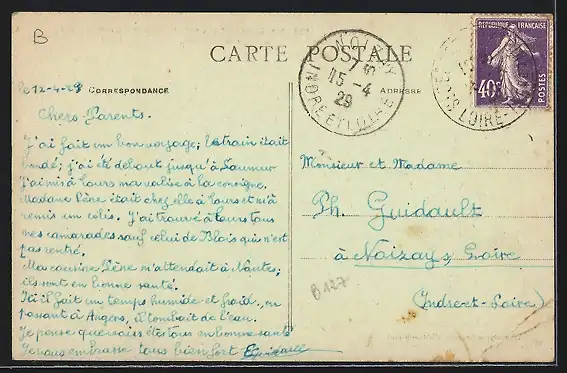 B
CARTE POSTALE
RÉPUBLIQUE FRANÇAISE
40c
POSTES
NOIZAY
15-4
29
INDRE ET LOIRE
le 12-4-29 CORRESPONDANCE
ADRESSE
Chers Parents.
J'ai fait un bon voyage; le train était
bondé; j'ai été debout jusqu'à Saumur
J'ai mis à Tours ma valise à la consigne.
Madame Pène était chez elle à Tours et m'a
remis un colis. J'ai trouvé à Tours tous
mes camarades sauf celui de Blois qui n'est
pas rentré.
Ma cousine Pène m'attendait à Nantes;
ils sont en bonne santé.
Ici il fait un temps humide et froid, en
passant à Angers, il tombait de l'eau.
Je pense que vous êtes tous en bonne santé
Je vous embrasse tous bien fort EGuidault
Monsieur et Madame
Ph. Guidault
à Noizay s Loire
(Indre-et-Loire)
B127